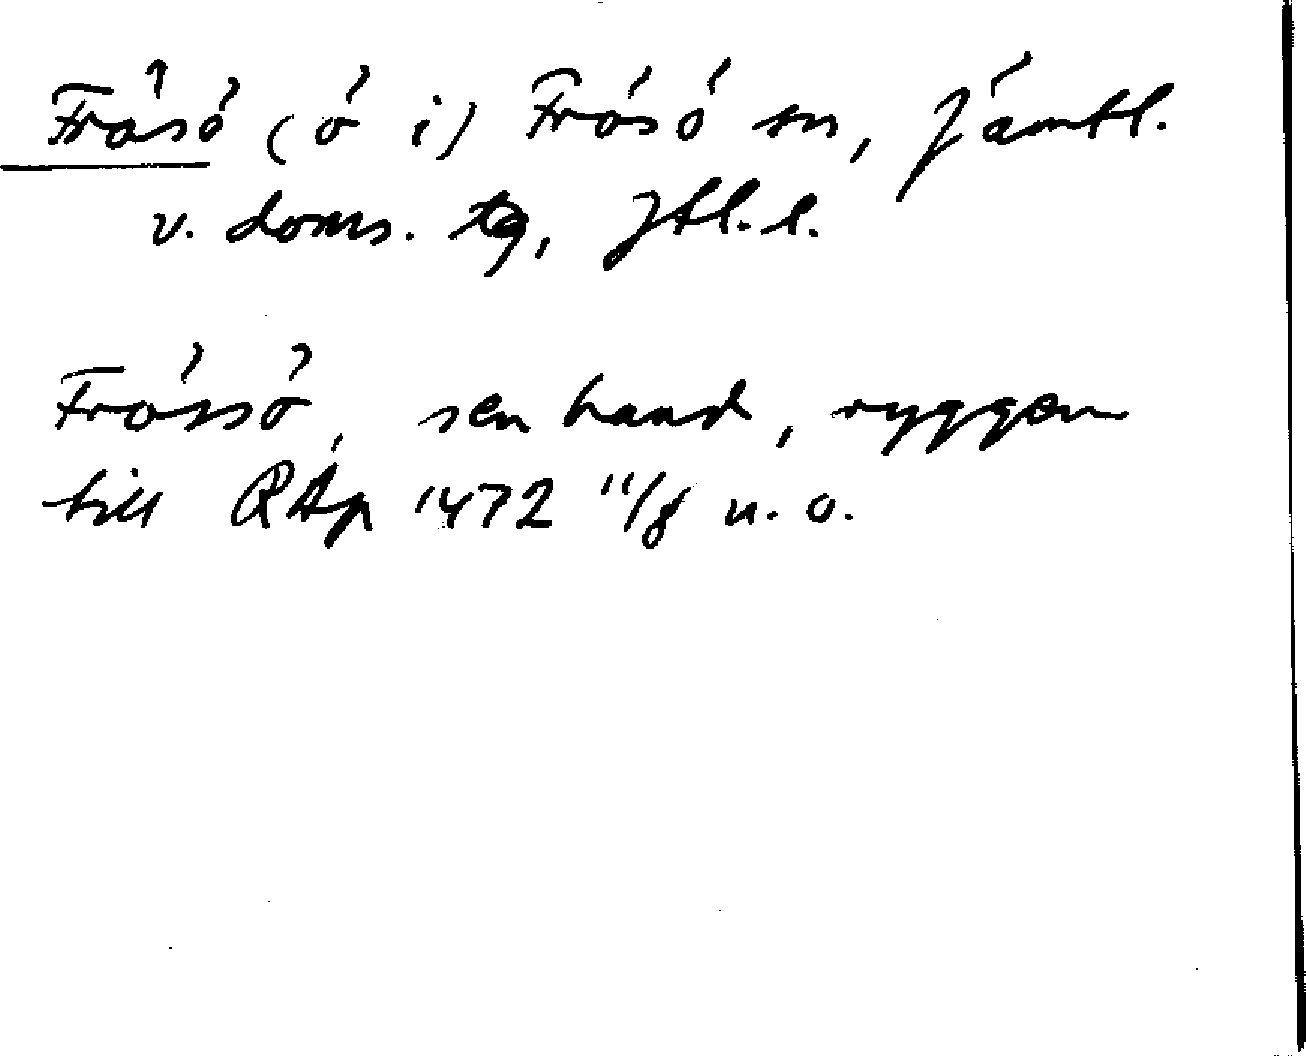 Frösö (ö i) Frösö sn, Jämtl.
v. doms. tg, Jtl. l.
Frössö, sen hand, ryggen
till RAp 1472 11/8 u. o.